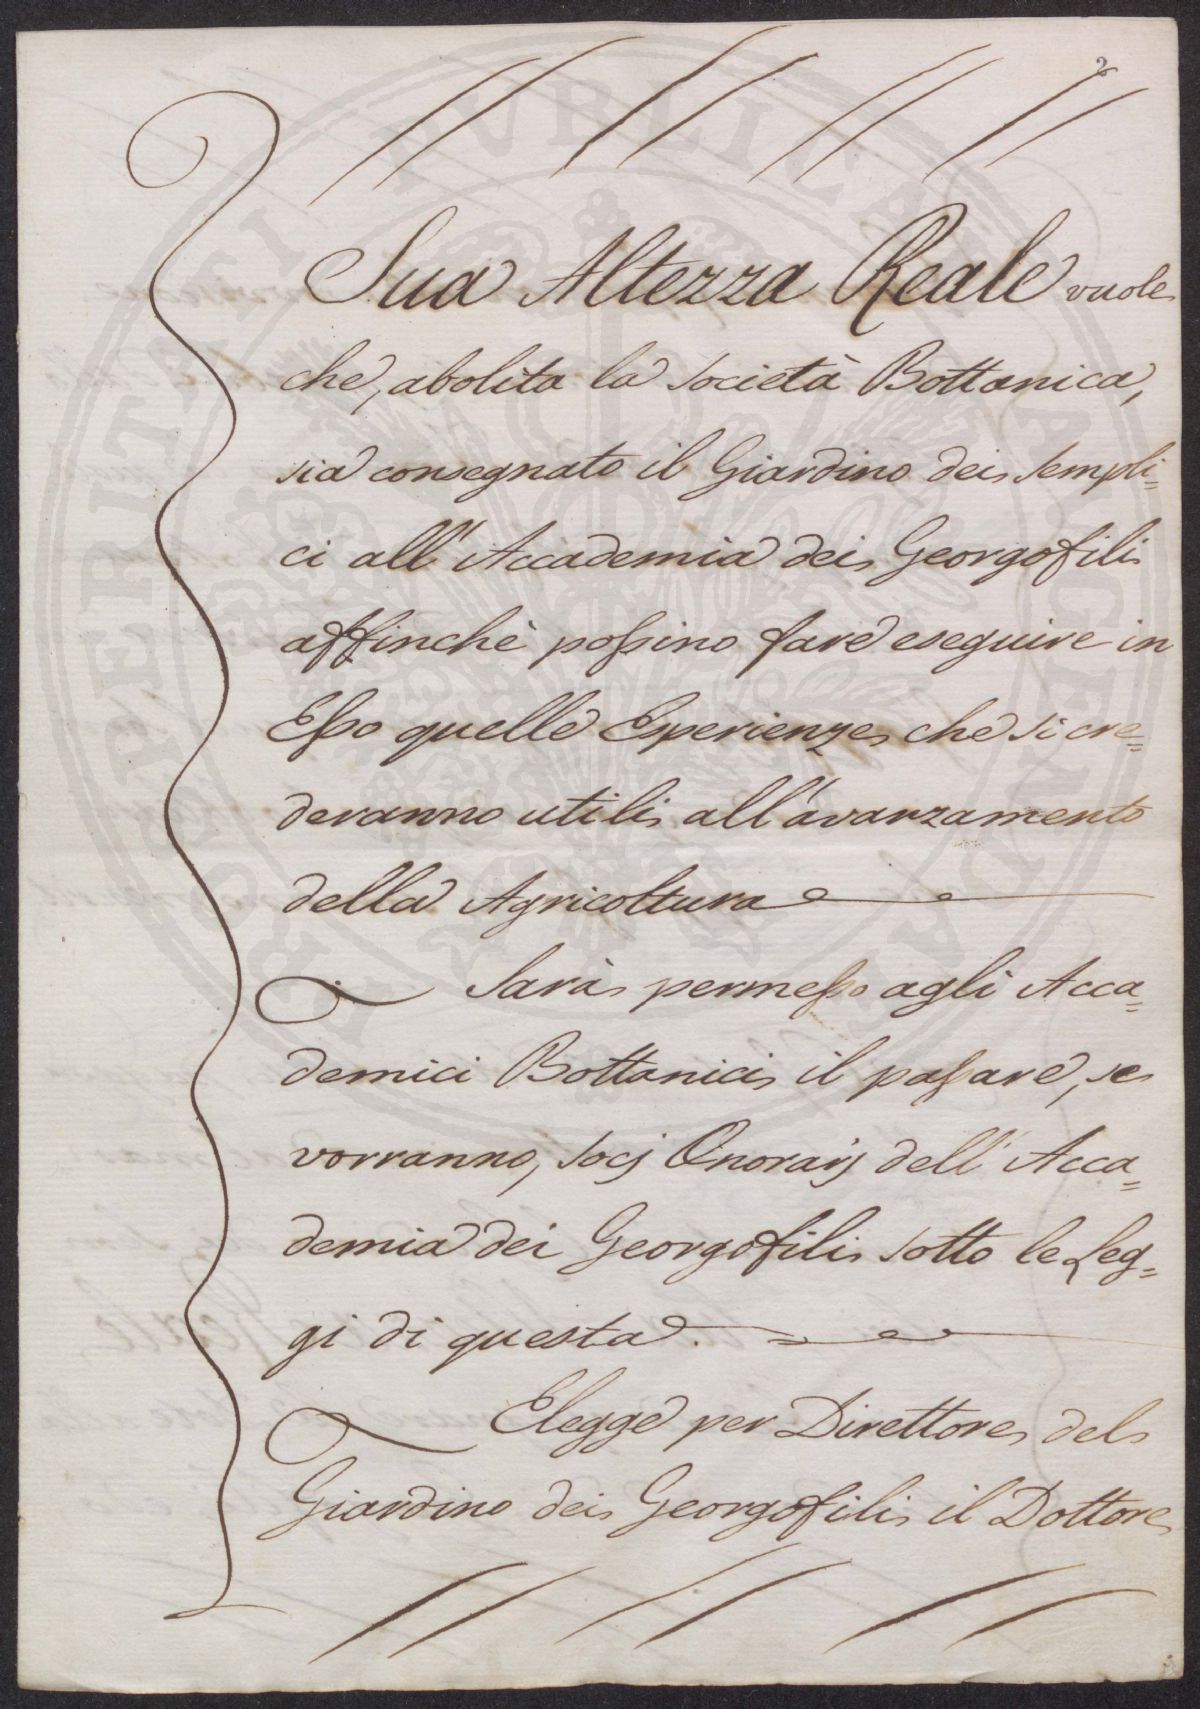 2
Sua Altezza Reale vuole
che, abolita la Società Bottanica,
sia consegnato il Giardino dei Sempli=
ci all'Accademia dei Georgofili
affinchè possino fare eseguire in
Esso quelle Esperienze che si cre=
deranno utili all'avanzamento
della Agricoltura
Sarà permesso agli Acca=
demici Bottanici il passare, se
vorranno, Socj Onorarj dell'Acca=
demia dei Georgofili sotto le Leg=
gi di questa.
Elegge per Direttore del
Giardino dei Georgofili il Dottore
PROSPERITATI PUBLICAE AUGENDAE